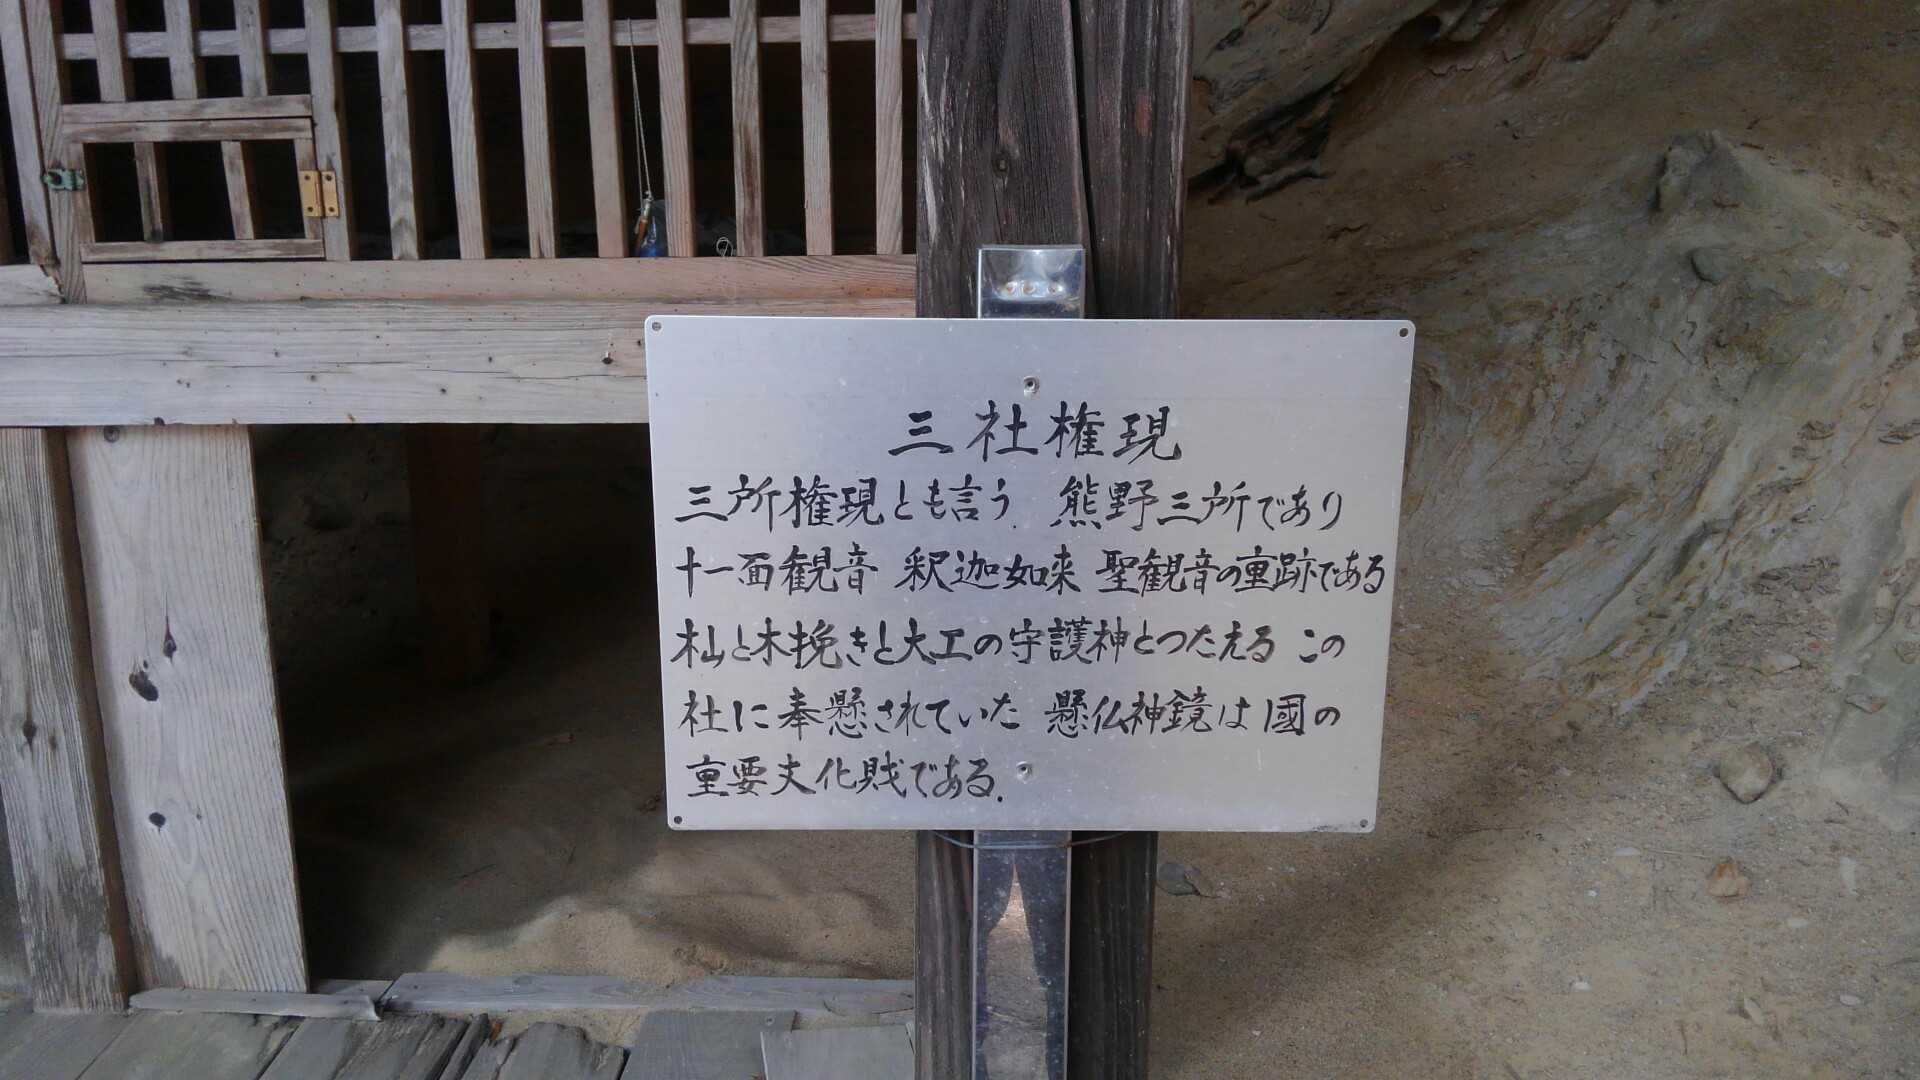 三社権現
三所権現とも言う. 熊野三所であり
十一面観音 釈迦如来 聖観音の垂跡である
杣と木挽きと大工の守護神とつたえる この
社に奉懸されていた 懸仏神鏡は國の
重要文化財である.